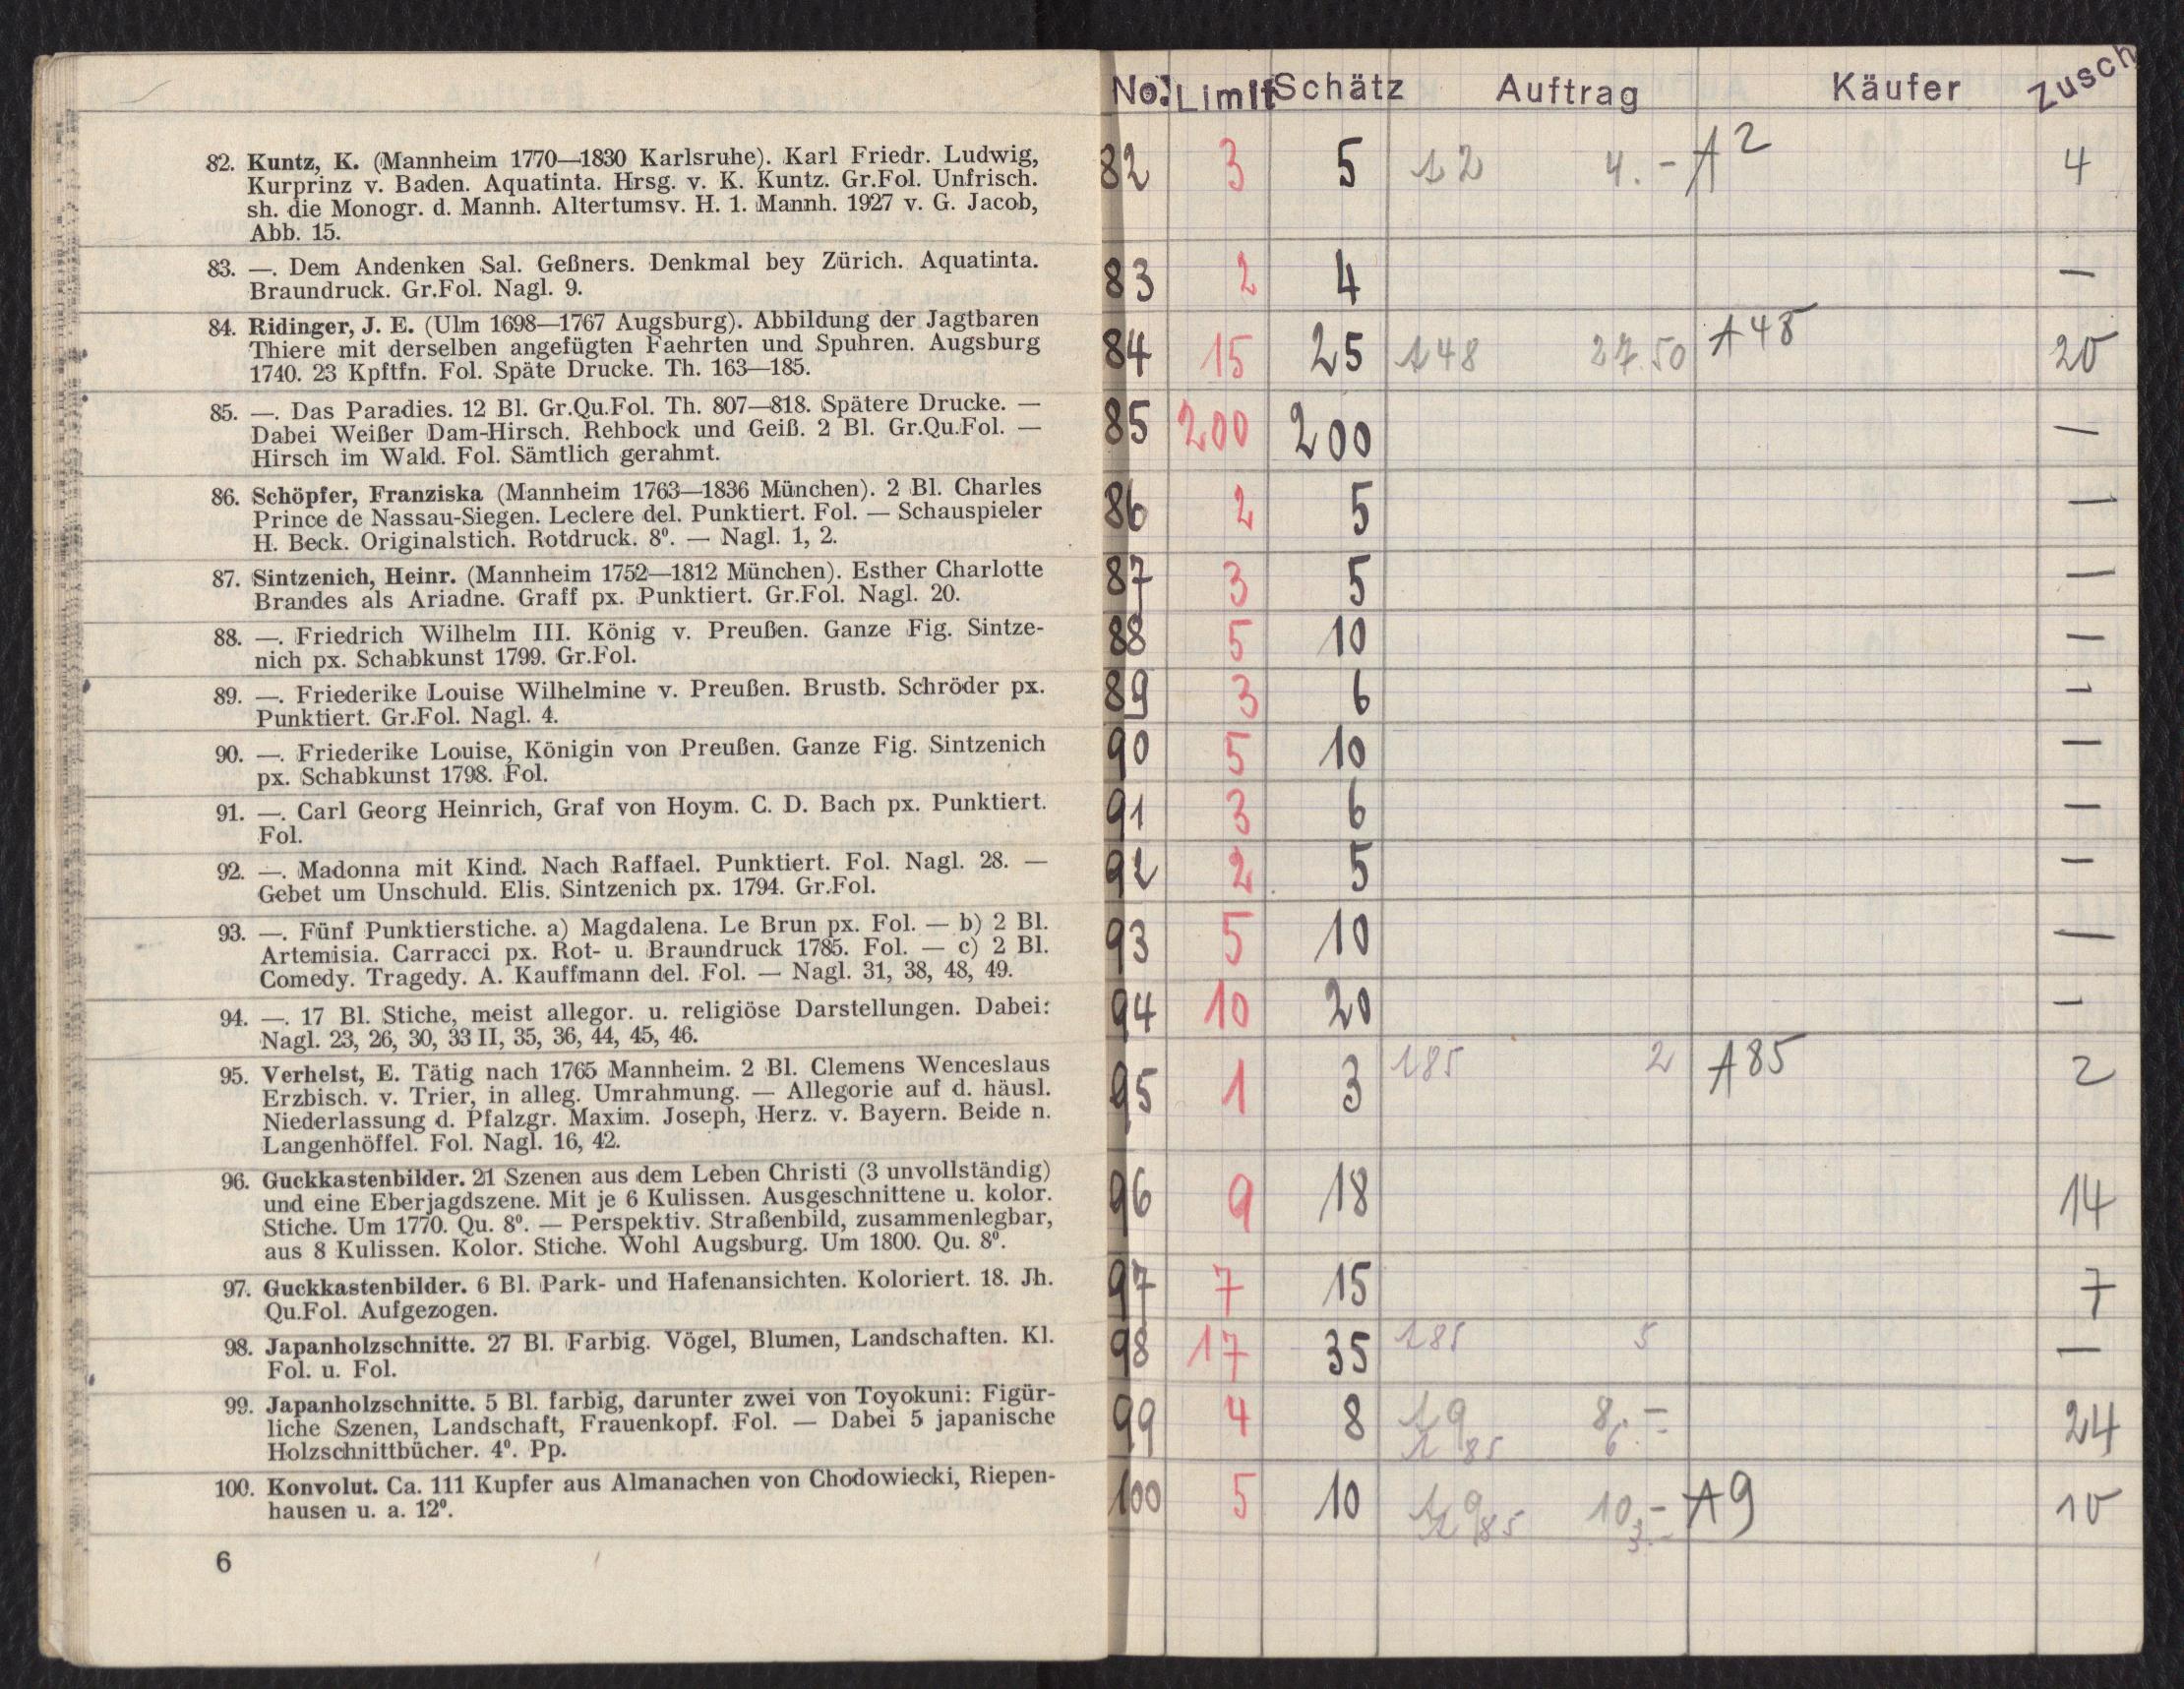 82. Kuntz, K. (Mannheim 1770—1830 Karlsruhe). Karl Friedr. Ludwig,
Kurprinz v. Baden. Aquatinta. Hrsg. v. K. Kuntz. Gr.Fol. Unfrisch.
sh. die Monogr. d. Mannh. Altertumsv. H. 1. Mannh. 1927 v. G. Jacob,
Abb. 15.
83. —. Dem Andenken Sal. Geßners. Denkmal bey Zürich. Aquatinta.
Braundruck. Gr.Fol. Nagl. 9.
84. Ridinger, J. E. (Ulm 1698—1767 Augsburg). Abbildung der Jagtbaren
Thiere mit derselben angefügten Faehrten und Spuhren. Augsburg
1740. 23 Kpftfn. Fol. Späte Drucke. Th. 163—185.
85. —. Das Paradies. 12 Bl. Gr.Qu.Fol. Th. 807—818. Spätere Drucke. —
Dabei Weißer Dam-Hirsch. Rehbock und Geiß. 2 Bl. Gr.Qu.Fol. —
Hirsch im Wald. Fol. Sämtlich gerahmt.
86. Schöpfer, Franziska (Mannheim 1763—1836 München). 2 Bl. Charles
Prince de Nassau-Siegen. Leclere del. Punktiert. Fol. — Schauspieler
H. Beck. Originalstich. Rotdruck. 8º. — Nagl. 1, 2.
87. Sintzenich, Heinr. (Mannheim 1752—1812 München). Esther Charlotte
Brandes als Ariadne. Graff px. Punktiert. Gr.Fol. Nagl. 20.
88. —. Friedrich Wilhelm III. König v. Preußen. Ganze Fig. Sintze-
nich px. Schabkunst 1799. Gr.Fol.
89. —. Friederike Louise Wilhelmine v. Preußen. Brustb. Schröder px.
Punktiert. Gr.Fol. Nagl. 4.
90. —. Friederike Louise, Königin von Preußen. Ganze Fig. Sintzenich
px. Schabkunst 1798. Fol.
91. —. Carl Georg Heinrich, Graf von Hoym. C. D. Bach px. Punktiert.
Fol.
92. —. Madonna mit Kind. Nach Raffael. Punktiert. Fol. Nagl. 28. —
Gebet um Unschuld. Elis. Sintzenich px. 1794. Gr.Fol.
93. —. Fünf Punktierstiche. a) Magdalena. Le Brun px. Fol. — b) 2 Bl.
Artemisia. Carracci px. Rot- u. Braundruck 1785. Fol. — c) 2 Bl.
Comedy. Tragedy. A. Kauffmann del. Fol. — Nagl. 31, 38, 48, 49.
94. —. 17 Bl. Stiche, meist allegor. u. religiöse Darstellungen. Dabei:
Nagl. 23, 26, 30, 33 II, 35, 36, 44, 45, 46.
95. Verhelst, E. Tätig nach 1765 Mannheim. 2 Bl. Clemens Wenceslaus
Erzbisch. v. Trier, in alleg. Umrahmung. — Allegorie auf d. häusl.
Niederlassung d. Pfalzgr. Maxim. Joseph, Herz. v. Bayern. Beide n.
Langenhöffel. Fol. Nagl. 16, 42.
96. Guckkastenbilder. 21 Szenen aus dem Leben Christi (3 unvollständig)
und eine Eberjagdszene. Mit je 6 Kulissen. Ausgeschnittene u. kolor.
Stiche. Um 1770. Qu. 8º. — Perspektiv. Straßenbild, zusammenlegbar,
aus 8 Kulissen. Kolor. Stiche. Wohl Augsburg. Um 1800. Qu. 8º.
97. Guckkastenbilder. 6 Bl. Park- und Hafenansichten. Koloriert. 18. Jh.
Qu.Fol. Aufgezogen.
98. Japanholzschnitte. 27 Bl. Farbig. Vögel, Blumen, Landschaften. Kl.
Fol. u. Fol.
99. Japanholzschnitte. 5 Bl. farbig, darunter zwei von Toyokuni: Figür-
liche Szenen, Landschaft, Frauenkopf. Fol. — Dabei 5 japanische
Holzschnittbücher. 4º. Pp.
100. Konvolut. Ca. 111 Kupfer aus Almanachen von Chodowiecki, Riepen-
hausen u. a. 12º.
6
No. Limit Schätz Auftrag Käufer Zusch
82 3 5 A2 4.- A2 4
83 2 4 —
84 15 25 A48 27.50 A48 20
85 200 200 —
86 2 5 —
87 3 5 —
88 5 10 —
89 3 6 —
90 5 10 —
91 3 6 —
92 2 5 —
93 5 10 —
94 10 20 —
95 1 3 A85 2 A85 2
96 9 18 14
97 7 15 7
98 17 35 A85 5 —
99 4 8 A9 8.- 24
A85 6
100 5 10 A9 10.- A9 10
A85 3.-